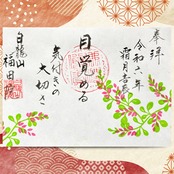 奉拝
令和六年
霜月吉日
目覚める
気付きの
大切さ
白龍山
福田院